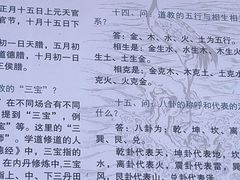 正月十五日上元天官
十月十五日下
初一日天腊，五月初
道德腊，十月初一日
王侯腊。
教的“三宝”？
”在不同场合有不同
提到“三宝”，例如
等）。这里的“三
。学道修道的人
德经》中，三宝指的
在内丹修炼中，三宝
上、中、下三丹田
十四、问：道教的五行与相生相
系？
答：金、木、水、火、土为五行。
相生是：金生水、水生木、木生火
土生金。
相克是：金克木、木克土、土克水
克火、火克金。
十五、问：八卦的称呼和代表的
答：八卦为：乾、坤、坎、离
巽、艮、兑。
乾卦代表天，坤卦代表地，坎
离卦代表火，震卦代表雷，巽
艮卦代表山，兑卦代表